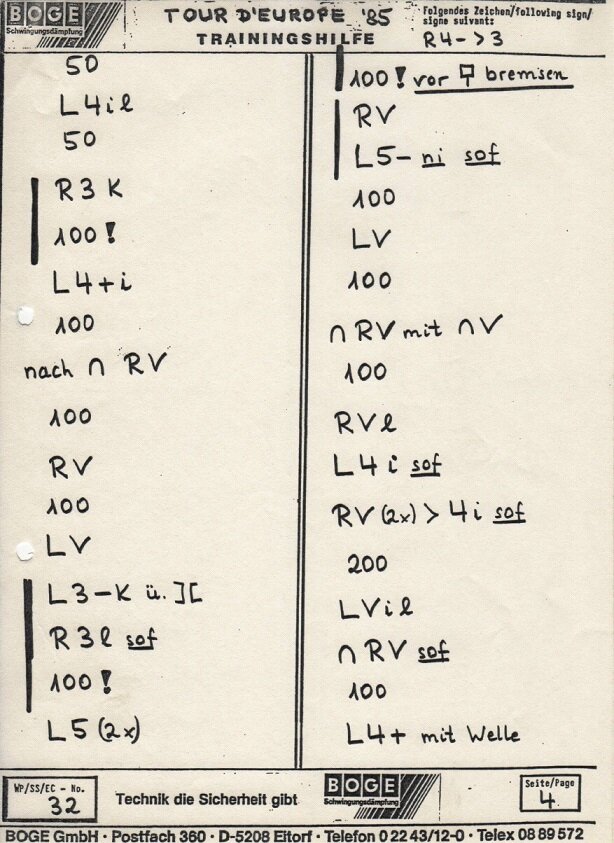 BOGE
Schwingungsdämpfung
TOUR D'EUROPE '85
TRAININGSHILFE
Folgendes Zeichen/following sign/
signe suivant:
R4->3
50
L4il
50
R3K
100!
L4+i
100
nach ∩ RV
100
RV
100
LV
L3-K ü. ][
R3l sof
100!
L5 (2x)
100! vor bremsen
RV
L5- ni sof
100
LV
100
∩ RV mit ∩V
100
RVl
L4i sof
RV (2x) > 4i sof
200
LVil
∩ RV sof
100
L4+ mit Welle
WP/SS/EC - No.
32
Technik die Sicherheit gibt
BOGE
Schwingungsdämpfung
Seite/Page
4
BOGE GmbH · Postfach 360 · D-5208 Eitorf · Telefon 0 22 43/12-0 · Telex 08 89 572